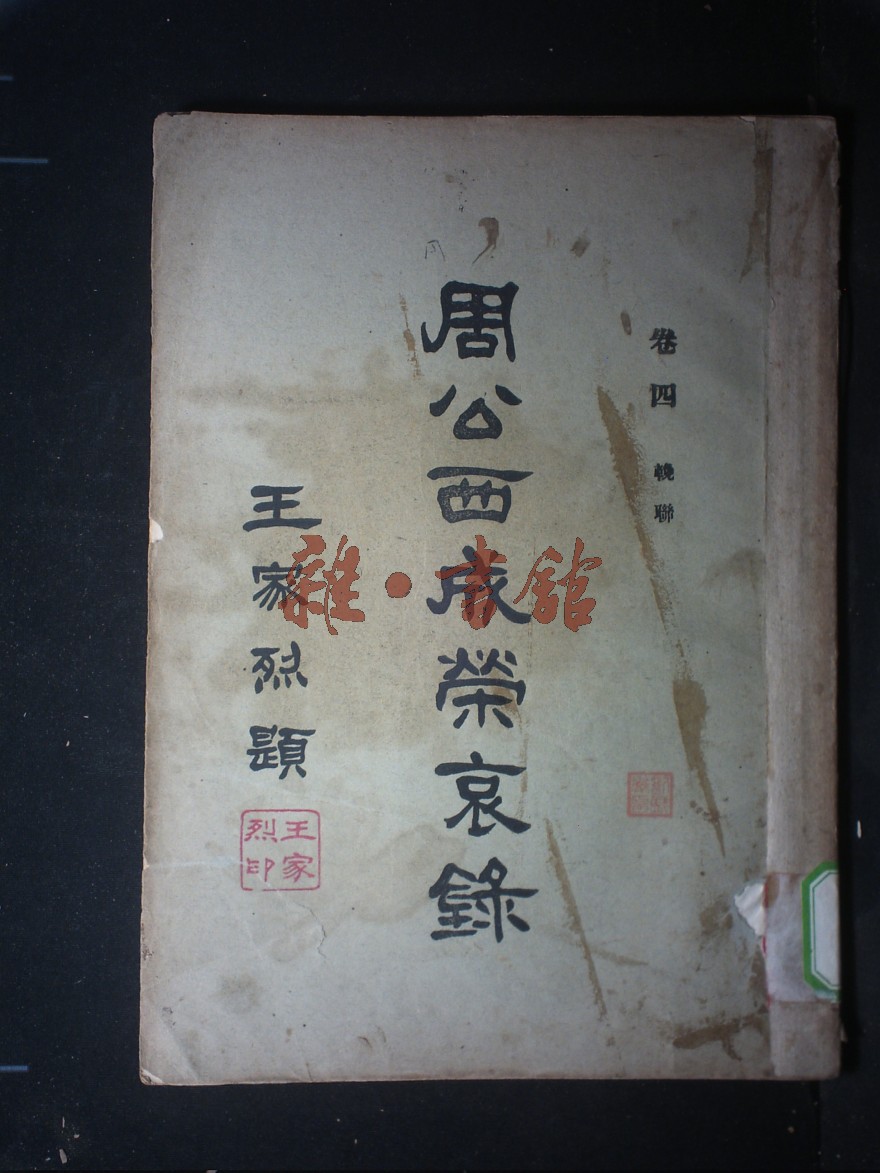 卷四 輓聯
周公西成榮哀錄
王家烈題
王家烈印
雜·書館